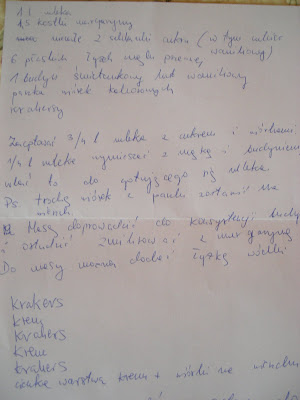 1 l mleka
1,5 kostki margaryny
może 2 szklanki cukru (w tym cukier
waniliowy)
6 płaskich łyżek mąki pszennej
1 budyń śmietankowy lub waniliowy
paczka wiórek kokosowych
krakersy
Zagotować 3/4 l mleka z cukrem i wiórkami
1/4 l mleka wymieszać z mąką i budyniem
wlać to do gotującego się mleka
Ps. trochę wiórek z paczki zostawić na
Masę doprowadzić do konsystencji budy
i ostudzić Zmiksować z margaryną
Do masy można dodać łyżkę wódki
krakers
krem
krakers
krem
krakers
cienka warstwa kremu + wiórki na wierzchu